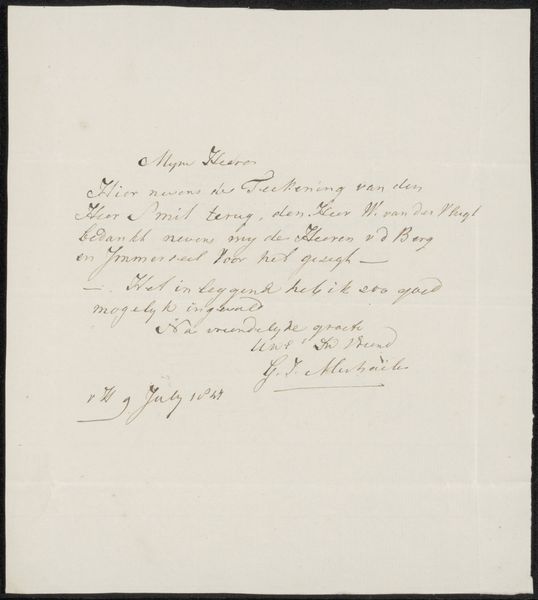 Myne Heeren
Hier nevens de Teekening van den
Heer Smit terug, den Heer W. van der Vlugt
bedankt nevens my de Heeren v d Berg
en Immerzeel voor het gezigt —
—. Het in leggend heb ik zoo goed
mogelyk ingevuld
Na vriendelyke groete
Uwe Vriend
G. J. Michaëlis
9 July